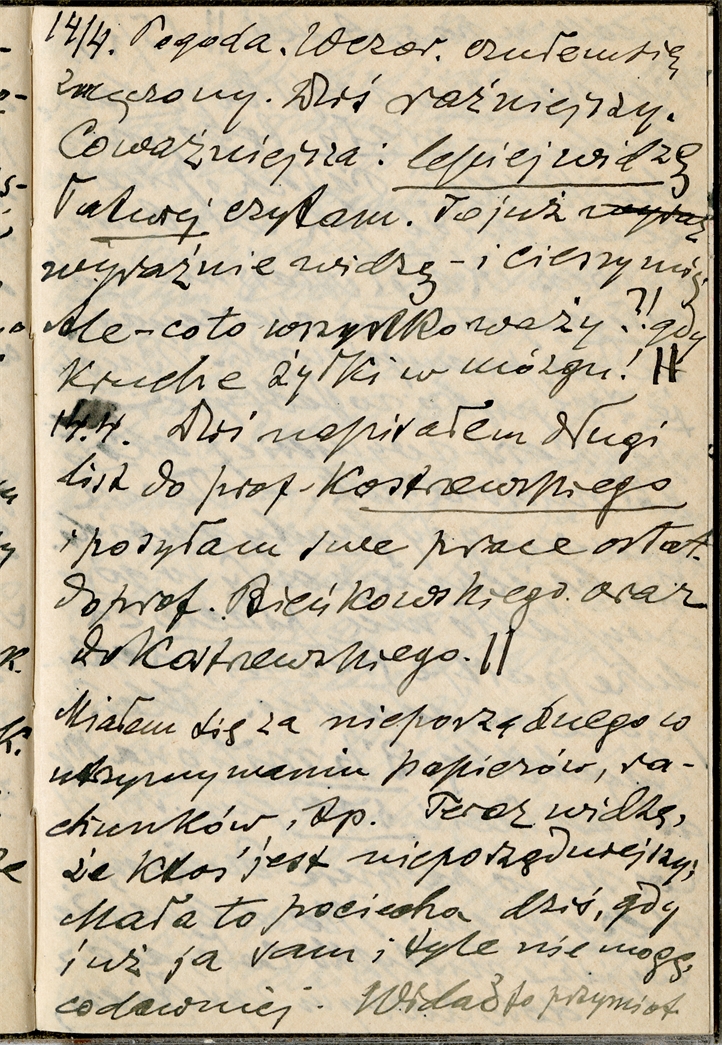 14/4. Pogoda. Wczor. czułem się
zmęczony. Dziś raźniejszy.
Co ważniejsza: lepiej widzę
łatwiej czytam. To już wyraź
wyraźnie widzę - i cieszy mię
Ale - co to wszystko waży?! gdy
kruche żyłki w mózgu! ||
14.4. Dziś napisałem długi
list do prof. Kostrzewskiego
i posyłam swe prace ostat.
do prof. Bieńkowskiego oraz
do Kostrzewskiego. ||
Miałem się za nieporządnego w
utrzymywaniu papierów, ra-
chunków, itp. Teraz widzę,
że ktoś jest nieporządniejszy;
Mała to pociecha dziś, gdy
już ja sam i tyle nie mogę,
co dawniej. Widać to przymiot